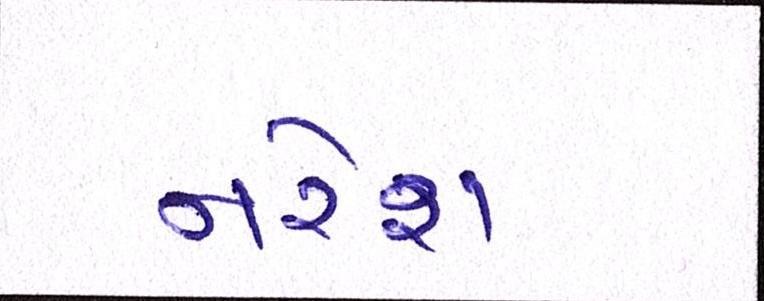 નરેશ